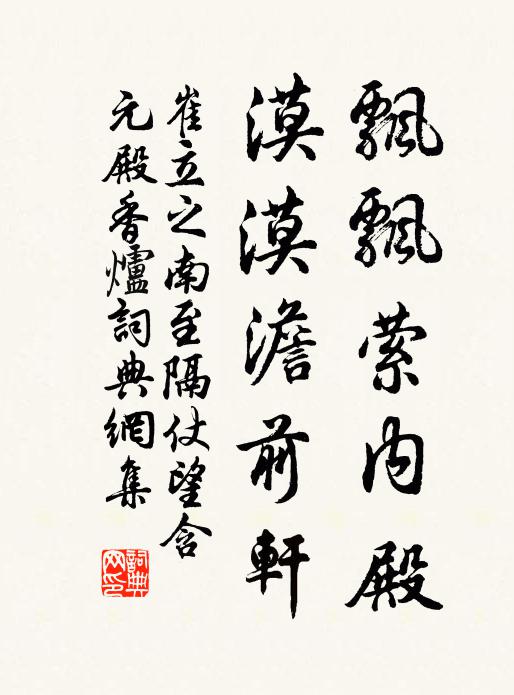 飄飄縈内殿
漠漠澹前軒
崔立之南至隔仗望含
元殿香爐詞典網集
詞典
网印